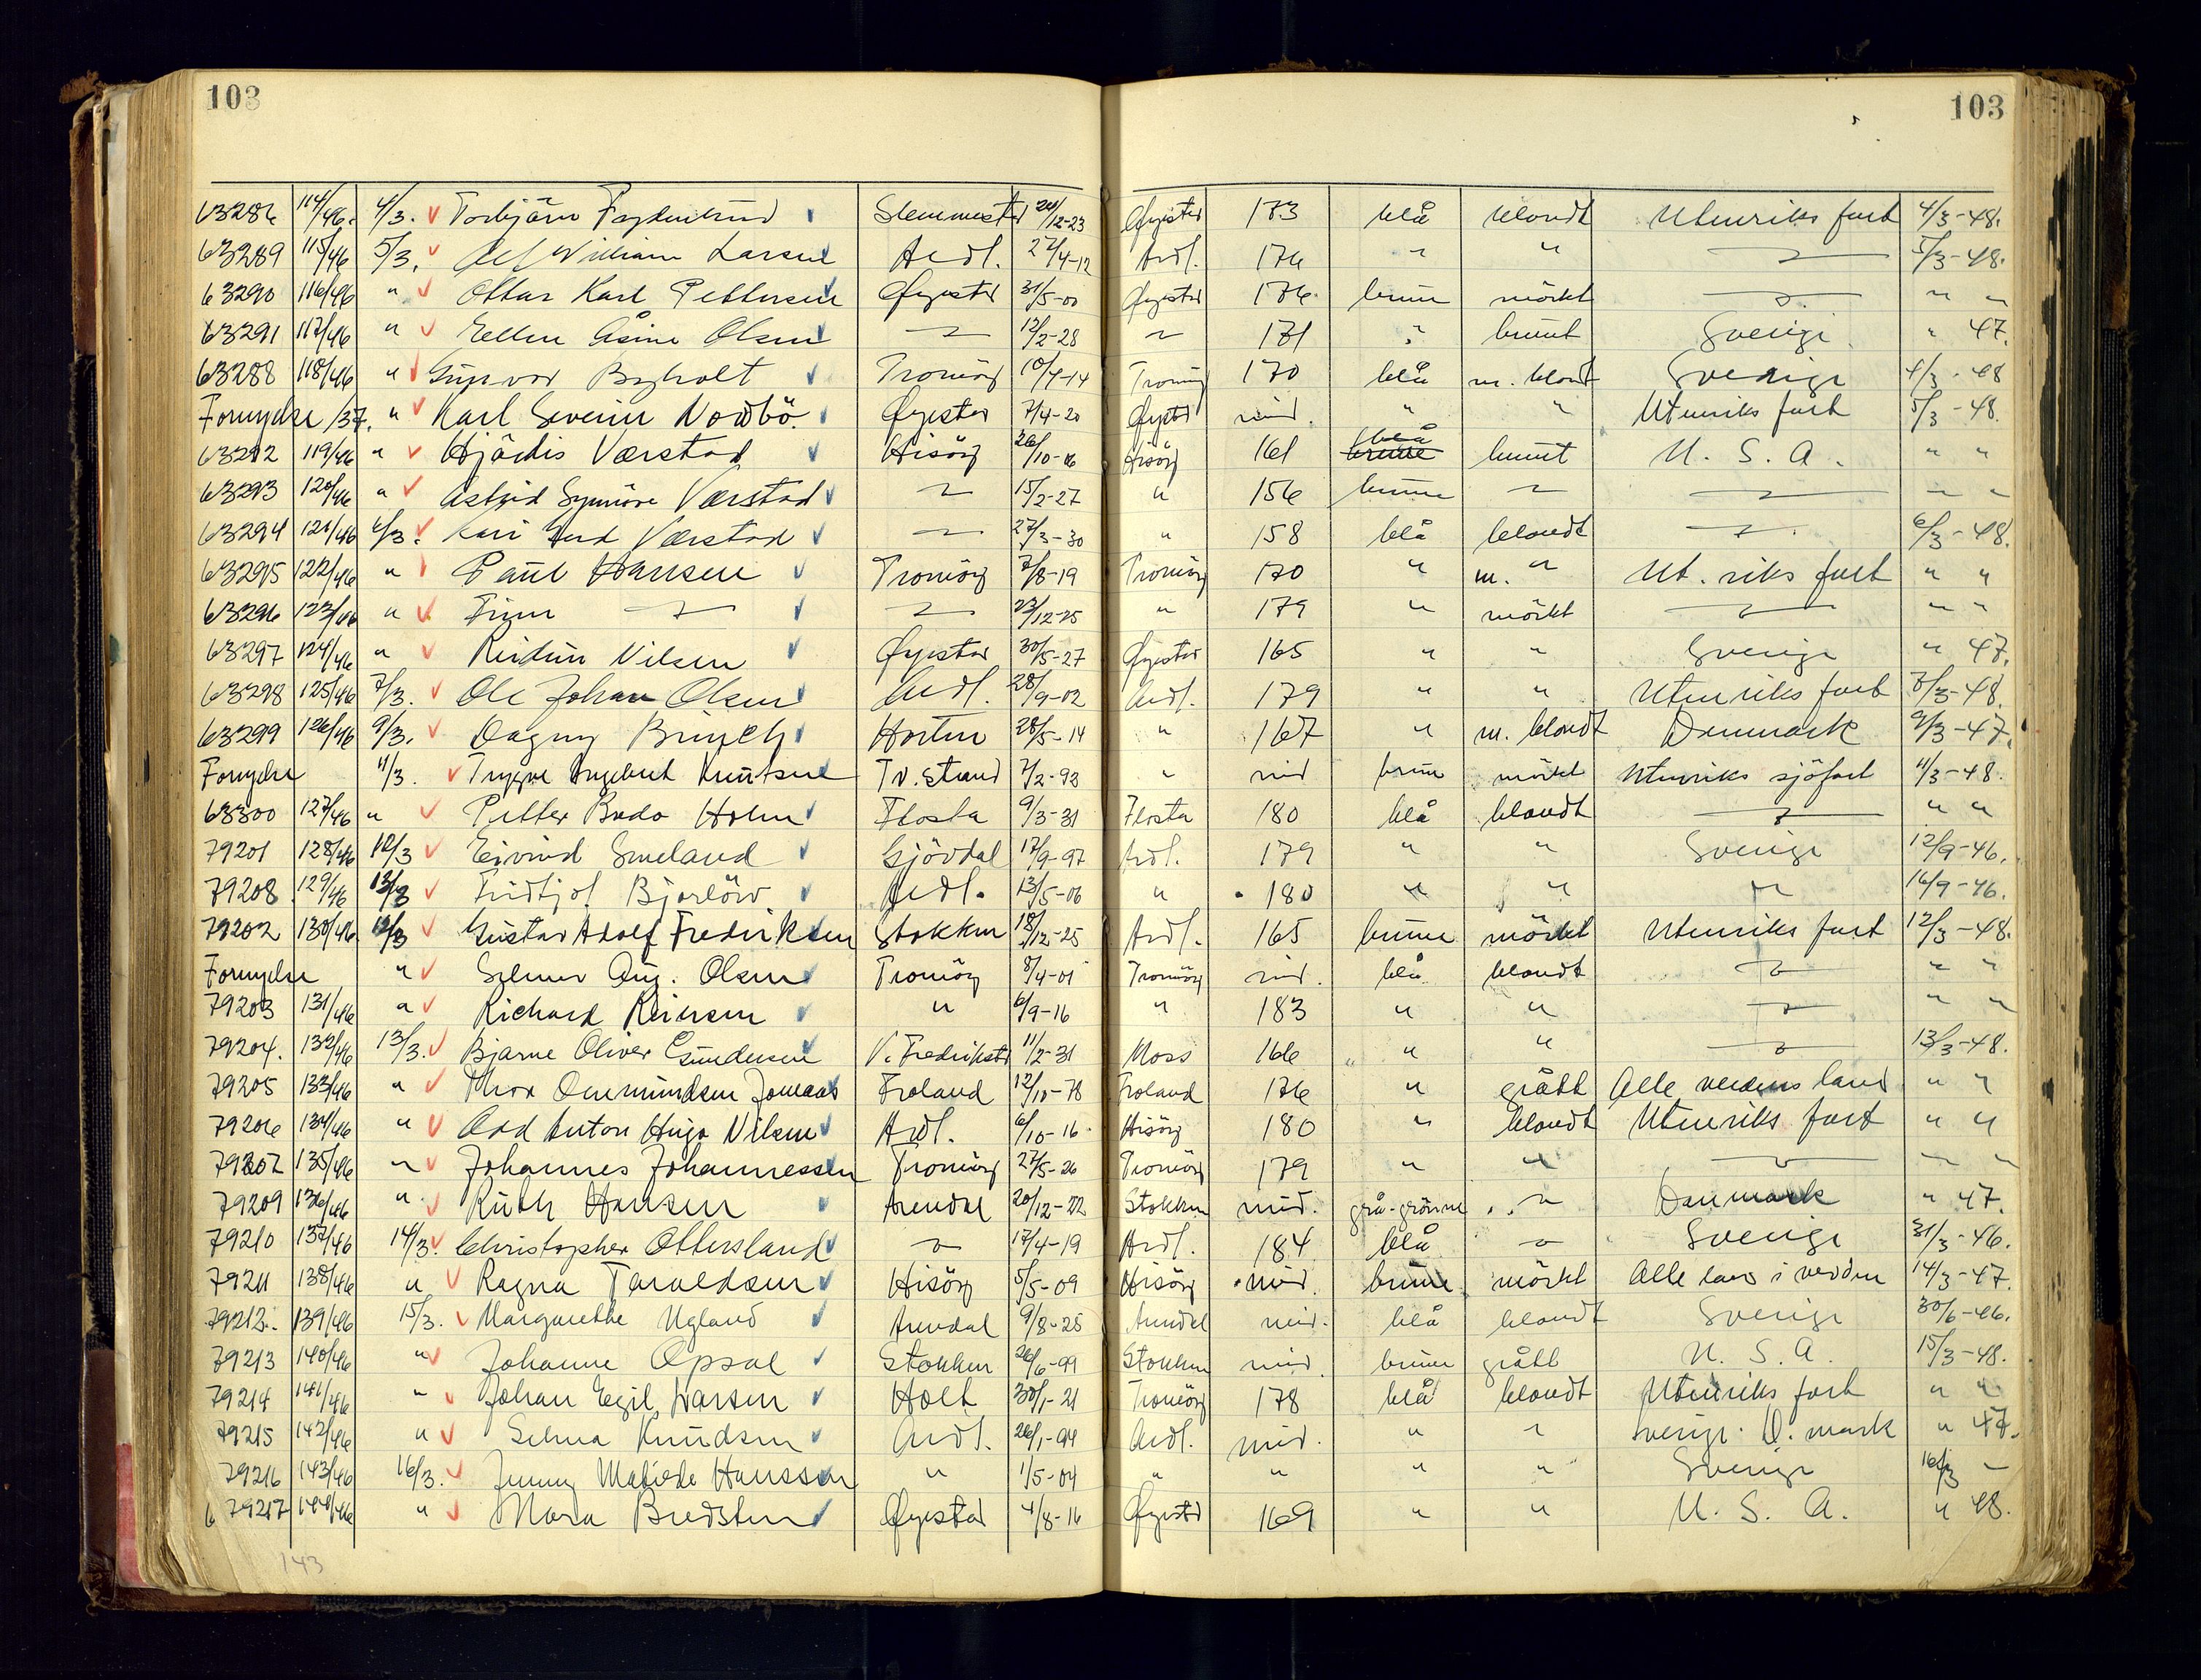 103 103
63286 114/46. 4/3. Torbjörn 24/12-23 Øyestad 173 blå blondt Utenriks fart 4/3-48.
63289 115/46 5/3. Alf William Larsen Ardl. 27/4-12 Ardl. 176 " " — 5/3-48.
63290 116/46 " Ottar Karl Pettersen Øyestad 31/5-00 Øyestad 176 brune mörkt — " "
63291 117/46 " Ellen Åsine Olsen — 12/2-28 — 171 " brunt Sverige " 47.
63288 118/46 " Gunvor Bygholt Tromöy 10/4-14 Tromöy 170 blå m. blondt Sverige 4/3-48
Fornyelse /37. " Karl Severin Nordbö Øyestad 7/4-20 Øyestad mid. " " Utenriks fart 5/3-48.
63292 119/46 " Hjördis Værstad Hisöy 26/10-06 Hisöy 161 blå brune brunt U. S. A. " "
63293 120/46 " Astrid Synnöve Værstad — 15/2-27 " 156 brune — — " "
63294 121/46 6/3. Kari Gerd Værstad — 27/3-30 " 158 blå blondt — 6/3-48.
63295 122/46 " Paul Hansen Tromöy 7/8-19 Tromöy 170 " m. " Ut. riks fart " "
63296 123/46 " Finn — — 23/12-25 " 179 " mörkt — " "
63297 124/46 " Reidun Nilsen Øyestad 30/5-27 Øyestad 165 " " Sverige " 47.
63298 125/46 7/3. Ole Johan Olsen Ardl. 28/9-02 Ardl. 179 " " Utenriks fart 7/3-48.
63299 126/46 9/3. Dagny Brinch Horten 28/5-14 " 167 " m. blondt Danmark 9/3-47.
Fornyelse 11/3. Trygve Engebret Knutsen Tv.strand 7/2-93 " mid brune mörkt Utenriks sjöfart 11/3-48.
63300 127/46 " Petter Bodo Holm Flosta 9/3-31 Flosta 180 blå blondt — " "
79201 128/46 12/3 Eivind Smeland Gjövdal 17/9-97 Ardl. 179 " " Sverige 12/9-46.
79208 129/46 13/3 Fridtjof Ardl. 13/5-06 " 180 " " " 16/9-46.
79202 130/46 12/3 Gustav Adolf Fredriksen Stokken 18/12-25 Ardl. 165 brune mörkt Utenriks fart 12/3-48.
Fornyelse " Selmer Aug. Olsen Tromöy 8/4-01 Tromöy mid. blå blondt — " "
79203 131/46 " Richard Reiersen " 6/9-16 " 183 " " — " "
79204. 132/46 13/3. Bjarne Oliver Gundersen V. Fredrikstd 11/2-31 Moss 166 " " — 13/3-48.
79205 133/46 " Thor Ommundsen Froland 12/10-78 Froland 176 " grått Alle verdens land " "
79206 134/46 " Odd Anton Hugo Nilsen Ardl. 6/10-16 Hisöy 180 " blondt Utenriks fart " "
79207 135/46 " Johannes Johannessen Tromöy 27/5-26 Tromöy 179 " " — " "
79209 136/46 " Ruth Hansen Arendal 20/12-22 Stokken mid. grå-grönne " Danmark " 47.
79210 137/46 14/3. Christopher Ottersland — 17/4-19 Ardl. 184 blå — Sverige 31/3-46.
79211 138/46 " Ragna Taraldsen Hisöy 5/5-09 Hisöy mid. brune mörkt Alle land i verden 14/3-47.
79212. 139/46 15/3. Margarethe Ugland Arendal 9/8-25 Arendal mid. blå blondt Sverige 30/6-46.
79213 140/46 " Johanne Opsal Stokken 26/6-99 Stokken mid. brune grått U. S. A. 15/3-48.
79214 141/46 " Johan Egil Larsen Holt 30/1-21 Tromöy 178 blå blondt Utenriks fart " "
79215 142/46 " Selma Knudsen Ardl. 26/1-94 Ardl. mid. " " Sverige. D. mark " 47.
79216 143/46 16/3. Jenny Matilde Hanssen " 1/5-04 " " " " Sverige 16/3 "
79217 144/46 " Mara Bredsten Øyestad 4/8-16 Øyestd 169 " " U. S. A. " 48.
143